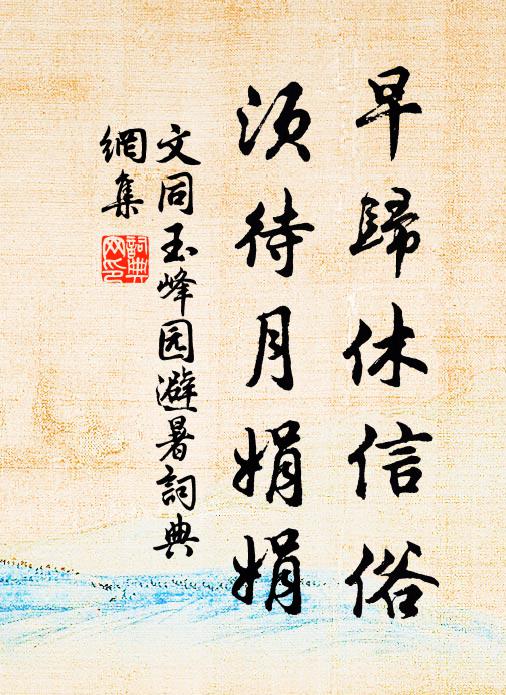 早歸休信俗
须待月娟娟
文同玉峰园避暑詞典
網集
詞典
网印